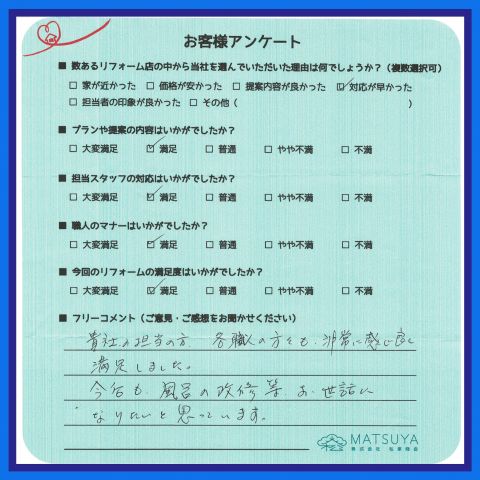 お客様アンケート
■ 数あるリフォーム店の中から当社を選んでいただいた理由は何でしょうか?(複数選択可)
□ 家が近かった □ 価格が安かった □ 提案内容が良かった ☑ 対応が早かった
□ 担当者の印象が良かった □ その他( )
■ プランや提案の内容はいかがでしたか?
□ 大変満足 ☑ 満足 □ 普通 □ やや不満 □ 不満
■ 担当スタッフの対応はいかがでしたか?
□ 大変満足 ☑ 満足 □ 普通 □ やや不満 □ 不満
■ 職人のマナーはいかがでしたか?
□ 大変満足 ☑ 満足 □ 普通 □ やや不満 □ 不満
■ 今回のリフォームの満足度はいかがですか?
□ 大変満足 ☑ 満足 □ 普通 □ やや不満 □ 不満
■ フリーコメント(ご意見・ご感想をお聞かせください)
貴社の担当の方 各職人の方々も、非常に感じ良く
満足しました。
今后も、風呂の改修等、お世話に
なりたいと思っています。
MATSUYA
株式会社